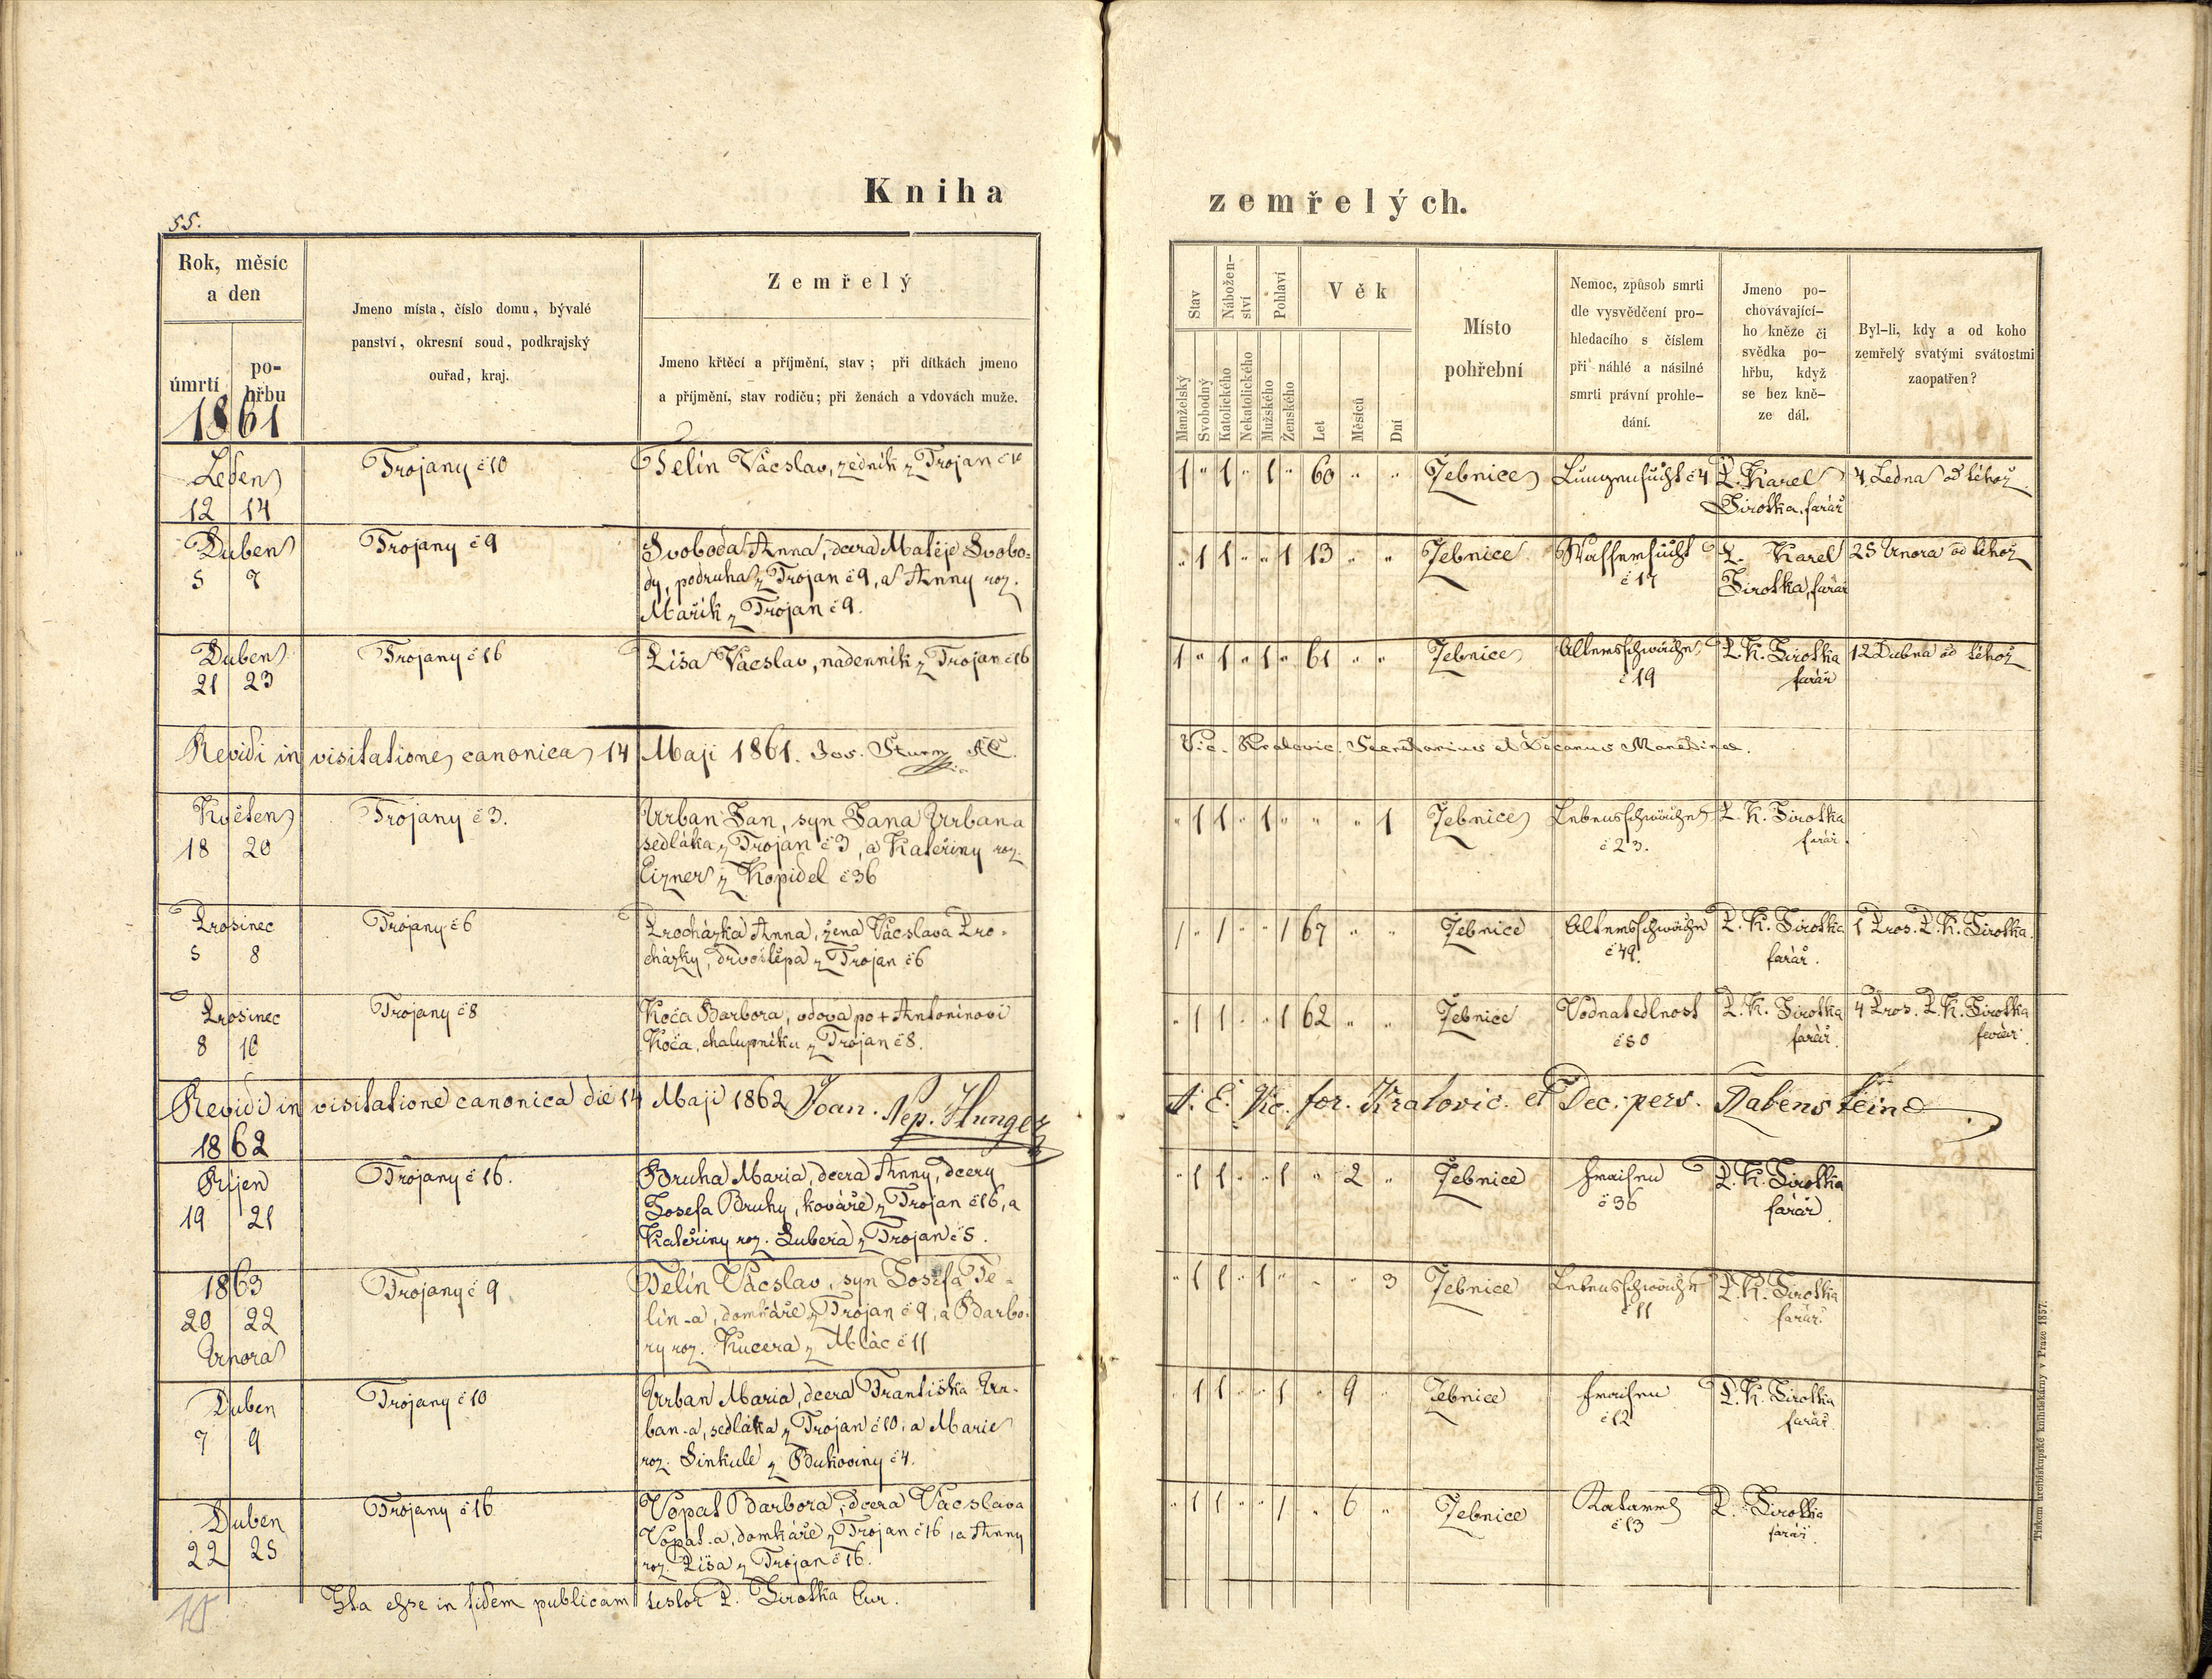 Kniha
zemřelých.
55.
Rok, měsíc
a den
úmrtí
po-
hřbu
1861
Jmeno místa, číslo domu, bývalé
panství, okresní soud, podkrajský
ouřad, kraj.
Zemřelý
Jmeno křtěcí a příjmění, stav; při dítkách jmeno
a příjmění, stav rodičů; při ženách a vdovách muže.
Stav
Nábožen-
ství
Pohlaví
Věk
Manželský
Svobodný
Katolického
Nekatolického
Mužského
Ženského
Let
Měsíců
Dní
Místo
pohřební
Nemoc, způsob smrti
dle vysvědčení pro-
hledacího s číslem
při náhlé a násilné
smrti právní prohle-
dání.
Jmeno po-
chovávající-
ho kněze či
svědka po-
hřbu, když
se bez kně-
ze dál.
Byl-li, kdy a od koho
zemřelý svatými svátostmi
zaopatřen?
Leden
12 14
Trojany č 10
Telín Václav, zedník z Trojan č 10
1 " 1 " 1 " 60 " "
Jebnice
Lungensucht č 4
P. Karel
Sirotka, farář
4. Ledna od téhož
Duben
5 7
Trojany č 9
Svoboda Anna, dcera Matěje Svobo-
dy, podruha z Trojan č 9, a Anny roz.
Mařík z Trojan č 9.
" 1 1 " " 1 13 " "
Jebnice
Wassersucht
č 17
P. Karel
Sirotka, farář
25 Února od téhož
Duben
21 23
Trojany č 16
Liša Vácslav, nádenník z Trojan č 16
1 " 1 " 1 " 61 " "
Jebnice
Altersschwäche
č 19
P. K. Sirotka
farář
12 Dubna od téhož
Revidi in visitatione canonica 14 Maji 1861. Jos. Sturm AE.
Vic. Kralovic. Secretarius et Decanus
Květen
18 20
Trojany č 3.
Urban Jan, syn Jana Urbana
sedláka z Trojan č 3, a Kateřiny roz.
Eizner z Kopidel č 36
" 1 1 " 1 " " " 1
Jebnice
Lebensschwäche
č 23.
P. K. Sirotka
farář.
Prosinec
5 8
Trojany č 6
Procházka Anna, žena Vácslava Pro-
cházky, drvoštěpa z Trojan č 6
1 " 1 " " 1 67 " "
Jebnice
Altersschwäche
č 49.
P. K. Sirotka
farář.
1 Pros. P. K. Sirotka.
Prosinec
8 10
Trojany č 8
Koča Barbora, vdova po + Antonínovi
Koča, chalupníku z Trojan č 8.
" 1 1 " " 1 62 " "
Jebnice
Vodnatedlnost
č 50
P. K. Sirotka
farář.
4 Pros. P. K. Sirotka
farář.
Revidi in visitatione canonica die 14 Maji 1862 Joan. Nep. Hunger
A. E. Vic. for. Kralovic. et Dec. pers. Rabensteine
1862
Říjen
19 21
Trojany č 16.
Bruha Maria, dcera Anny, dcery
Josefa Bruhy, kováře z Trojan č 16, a
Kateřiny roz. Lubera z Trojan č 5.
" 1 1 " " 1 " 2 "
Jebnice
Fraisen
č 36
P. K. Sirotka
farář
1863
20 22
Února
Trojany č 9
Telín Vácslav, syn Josefa Te-
lín-a, domkáře z Trojan č 9, a Barbo-
ry roz. Kučera z Mlac č 11
" 1 1 " 1 " " " 3
Jebnice
Lebensschwäche
č 11
P. K. Sirotka
farář.
Duben
7 9
Trojany č 10
Urban Maria, dcera Františka Ur-
ban-a, sedláka z Trojan č 10, a Marie
roz. Sinkule z Bukoviny č 4.
" 1 1 " " 1 " 9 "
Jebnice
Fraisen
č 12
P. K. Sirotka
farář
Duben
22 25
Trojany č 16
Vopat Barbora, dcera Vácslava
Vopat-a, domkáře z Trojan č 16, a Anny
roz. Liša z Trojan č 16.
" 1 1 " " 1 " 6 "
Jebnice
Katarrh
č 13
P. Sirotka
farář.
Ita esse in fidem publicam testor P. Sirotka Cur.
Tiskem knížecí arcibiskupské knihtiskárny v Praze 1857.